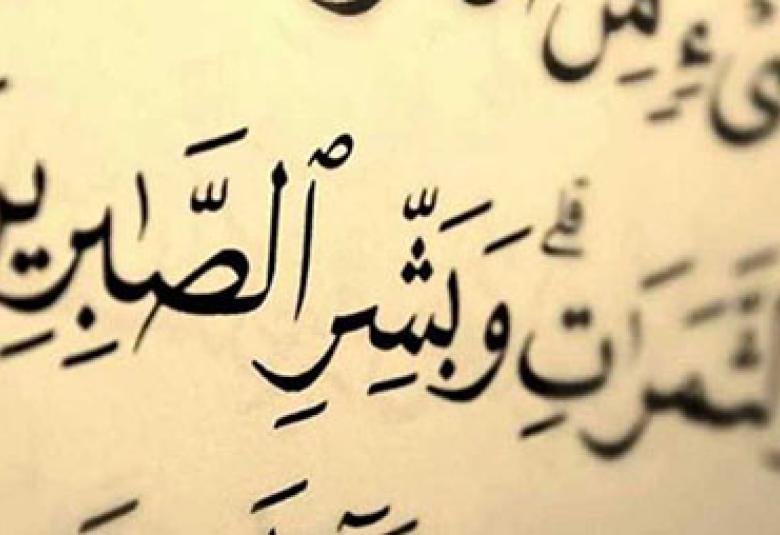 ىْءٍ مِّنَ
ٱلثَّمَرَٰتِ ۗ وَبَشِّرِ ٱلصَّـٰبِرِينَ